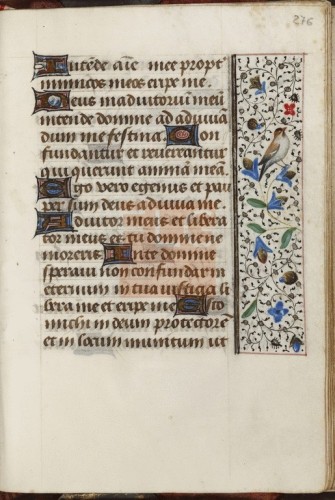 276
Intēde aīe mee propt
inimicos meos eripe me.
Deus in adiutoriū meū
intende domine ad adiuuā
dum me festina Non
fundantur et reuereantur
qui querunt animā meā
Ego vero egenus et pau
per sum deus adiuua me
Adiutor meus et libera
tor meus es tu domine ne
moreris In te domine
speraui non confundar in
eternum in tua iustitia li
bera me et eripe me Esto
michi in deum protectorē
et in locum munitum ut